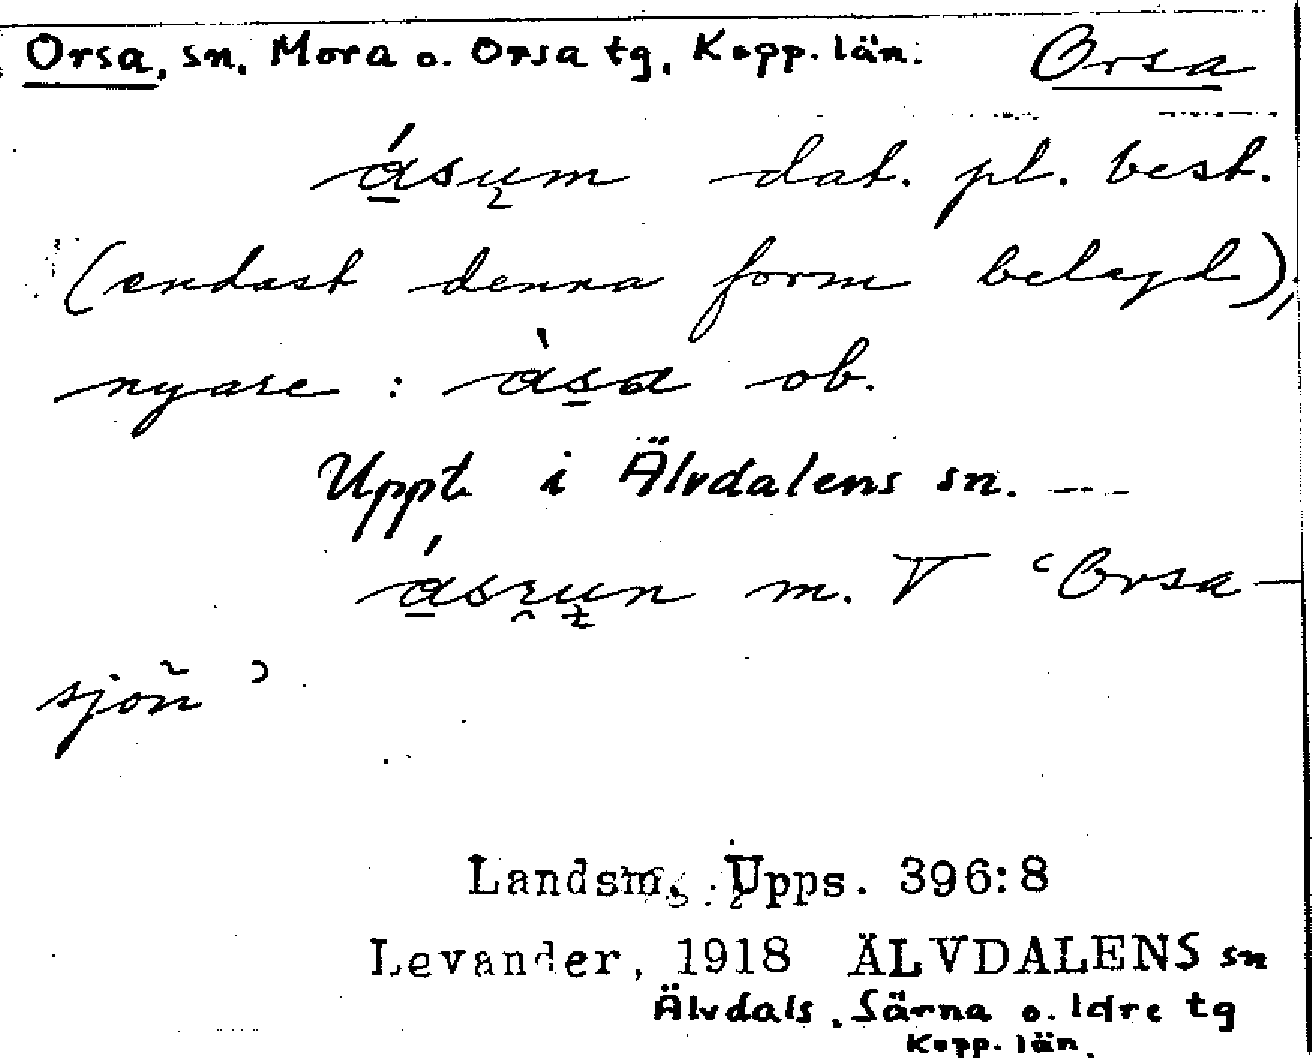 Orsa, sn. Mora o. Orsa tg, Kopp. län. Orsa
ásum dat. pl. best.
(endast denna form belagd),
nyare : àsa ob.
Uppt. i Älvdalens sn. ---
m. T ‘Orsa-
sjön’
Landsm. Upps. 396:8
Levander, 1918 ÄLVDALENS sn
Älvdals, Särna o. Idre tg
Kopp. län.